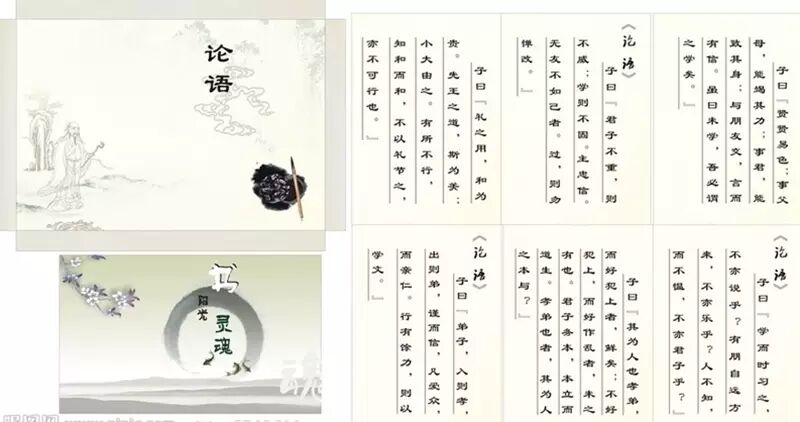 论语
书
阳光
灵魂
魂
子曰『贤贤易色；事父
母，能竭其力；事君，能
致其身；与朋友交，言而
有信。虽曰未学，吾必谓
之学矣。』
《论语》
子曰『君子不重，则
不威；学则不固。主忠信。
无友不如己者。过，则勿
惮改。』
子曰『礼之用，和为
贵。先王之道，斯为美；
小大由之。有所不行，
知和而和，不以礼节之，
亦不可行也。』
《论语》
子曰『学而时习之，
不亦说乎？有朋自远方
来，不亦乐乎？人不知，
而不愠，不亦君子乎？』
子曰『其为人也孝弟，
而好犯上者，鲜矣；不好
犯上，而好作乱者，未之
有也。君子务本，本立而
道生。孝弟也者，其为人
之本与？』
《论语》
子曰『弟子，入则孝，
出则弟，谨而信，凡爱众，
而亲仁。行有馀力，则以
学文。』